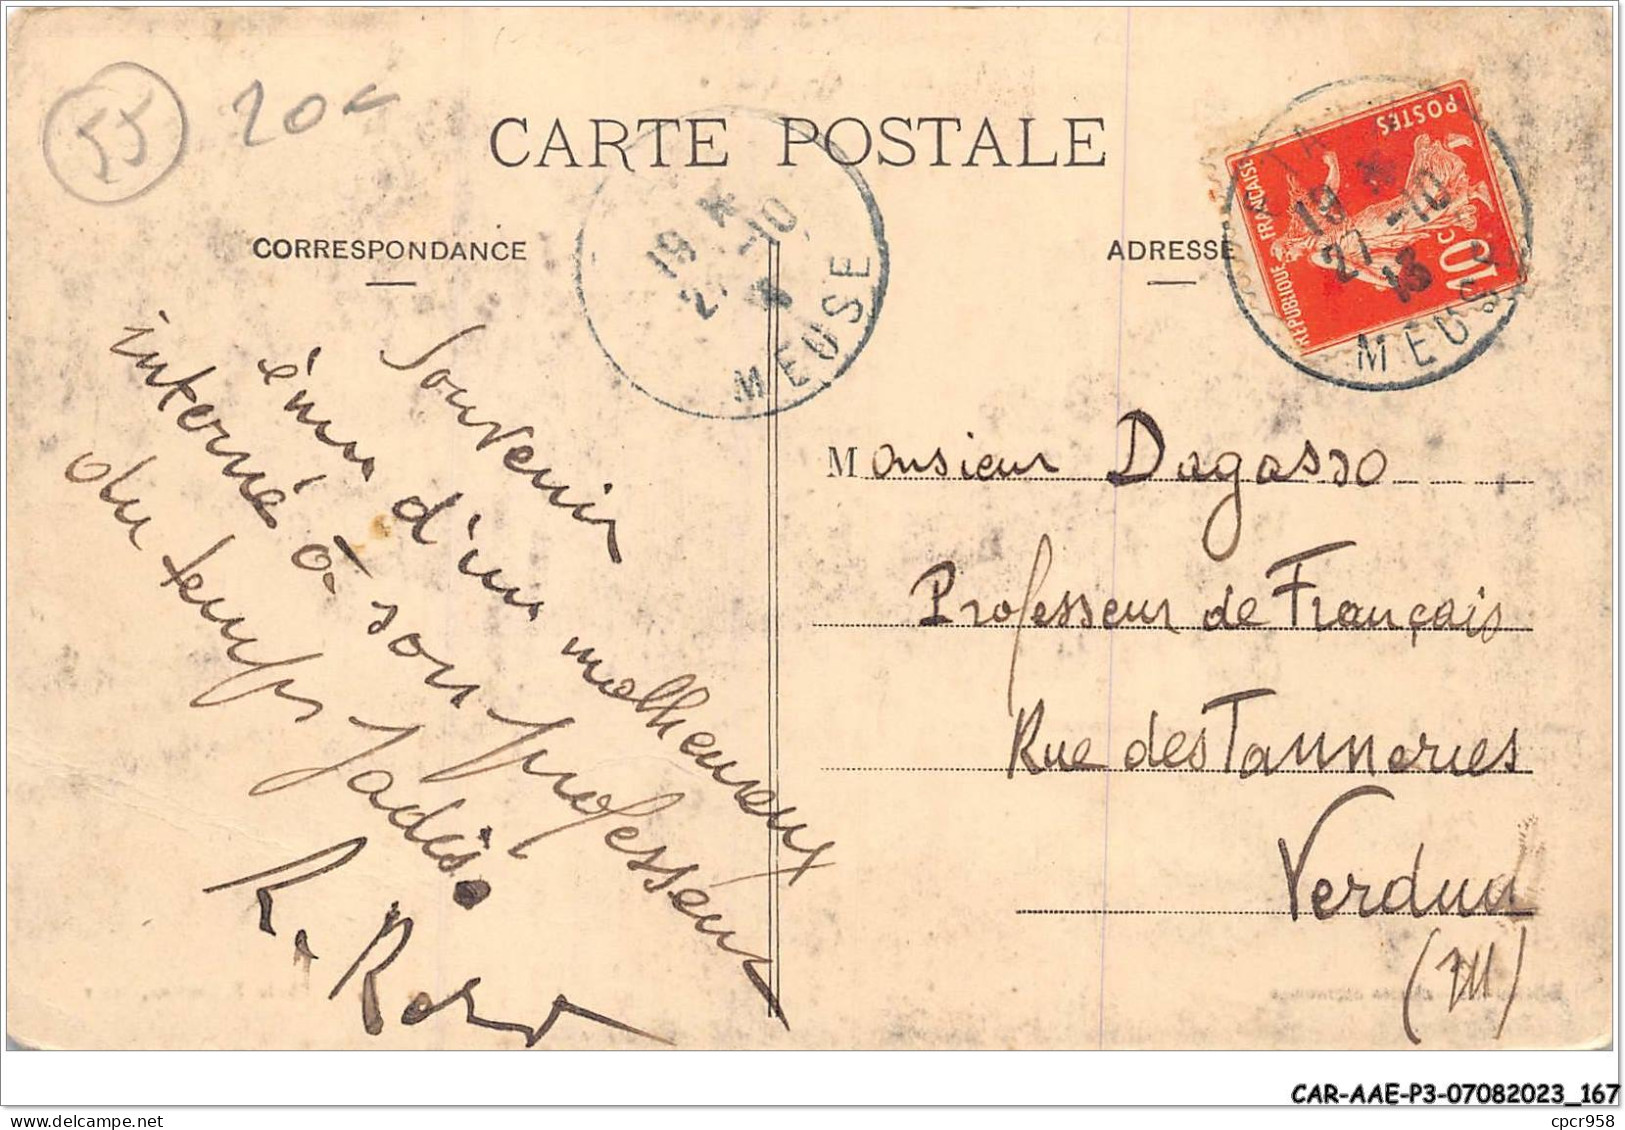 55 20c
CARTE POSTALE
CORRESPONDANCE
ADRESSE
19 *
27 -10
MEUSE
POSTES
REPUBLIQUE FRANÇAISE
10c
19 *
27 -10
13
MEUSE
Souvenir
ému d'un malheureux
interné à son professeur
du temps jadis.
Monsieur Dagasso
Professeur de Français
Rue des Tanneries
Verdun
(M)
CAR-AAE-P3-07082023_167
delcampe.net
cpcr958